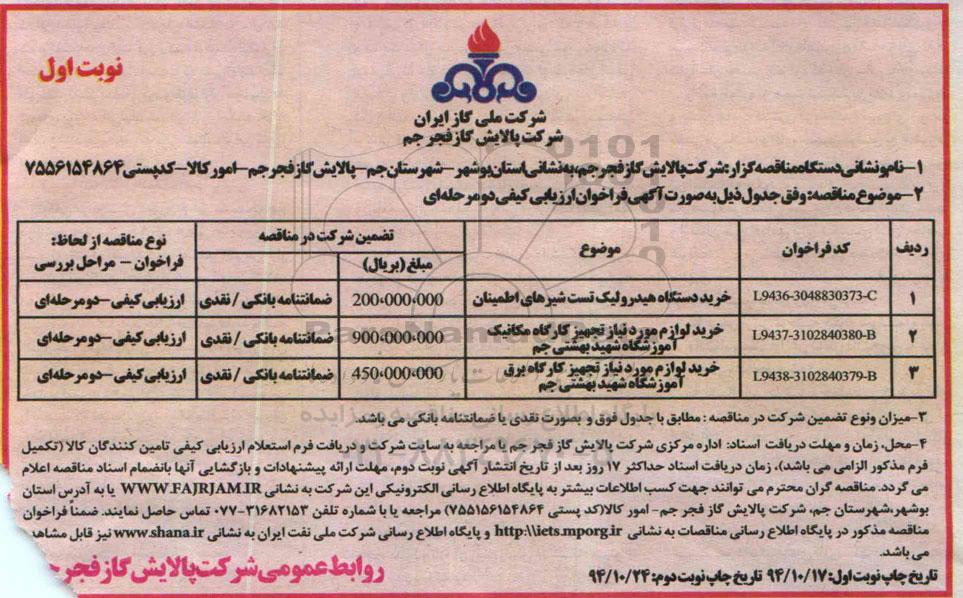 نوبت اول
شرکت ملی گاز ایران
شرکت پالایش گاز فجر جم
۱-نام و نشانی دستگاه مناقصه گزار: شرکت پالایش گاز فجر جم، به نشانی استان بوشهر-شهرستان جم-پالایش گاز فجر جم-امور کالا-کدپستی ۷۵۵۶۱۵۴۸۶۴
۲-موضوع مناقصه: وفق جدول ذیل به صورت آگهی فراخوان ارزیابی کیفی دو مرحله‌ای
ردیف کد فراخوان موضوع تضمین شرکت در مناقصه نوع مناقصه از لحاظ:
مبلغ (بریال) فراخوان - مراحل بررسی
۱ L9436-3048830373-C خرید دستگاه هیدرولیک تست شیرهای اطمینان 200،000،000 ضمانتنامه بانکی / نقدی ارزیابی کیفی-دو مرحله‌ای
۲ L9437-3102840380-B خرید لوازم مورد نیاز تجهیز کارگاه مکانیک
آموزشگاه شهید بهشتی جم 900،000،000 ضمانتنامه بانکی / نقدی ارزیابی کیفی-دو مرحله‌ای
۳ L9438-3102840379-B خرید لوازم مورد نیاز تجهیز کارگاه برق
آموزشگاه شهید بهشتی جم 450،000،000 ضمانتنامه بانکی / نقدی ارزیابی کیفی-دو مرحله‌ای
۳-میزان ونوع تضمین شرکت در مناقصه: مطابق با جدول فوق و بصورت نقدی یا ضمانتنامه بانکی می باشد.
۴-محل، زمان و مهلت دریافت اسناد: اداره مرکزی شرکت پالایش گاز فجر جم با مراجعه به سایت شرکت و دریافت فرم استعلام ارزیابی کیفی تامین کنندگان کالا (تکمیل
فرم مذکور الزامی می باشد)، زمان دریافت اسناد حداکثر ۱۷ روز بعد از تاریخ انتشار آگهی نوبت دوم، مهلت ارائه پیشنهادات و بازگشایی آنها بانضمام اسناد مناقصه اعلام
می گردد. مناقصه گران محترم می توانند جهت کسب اطلاعات بیشتر به پایگاه اطلاع رسانی الکترونیکی این شرکت به نشانی WWW.FAJRJAM.IR یا به آدرس استان
بوشهر،شهرستان جم، شرکت پالایش گاز فجر جم- امور کالا(کد پستی ۷۵۵۱۵۶۱۵۴۸۶۴) مراجعه یا با شماره تلفن ۳۱۶۸۲۱۵۳-۰۷۷ تماس حاصل نمایند. ضمناً فراخوان
مناقصه مذکور در پایگاه اطلاع رسانی مناقصات به نشانی http:\\iets.mporg.ir و پایگاه اطلاع رسانی شرکت ملی نفت ایران به نشانی www.shana.ir نیز قابل مشاهد
می باشد.
تاریخ چاپ نوبت اول: ۹۴/۱۰/۱۷ تاریخ چاپ نوبت دوم: ۹۴/۱۰/۲۴
روابط عمومی شرکت پالایش گاز فجر